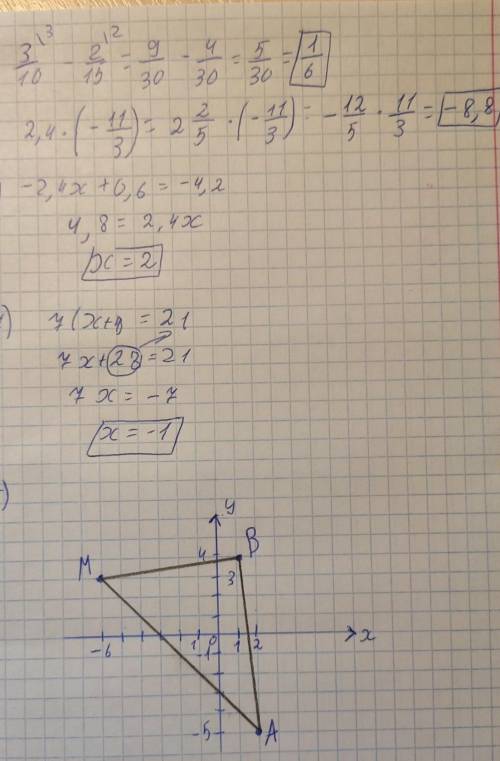 3/10 \3 - 2/15 \2 = 9/30 - 4/30 = 5/30 = 1/6
2,4 · (-11/3) = 2 2/5 · (-11/3) = -12/5 · 11/3 = -8,8
-2,4x + 0,6 = -4,2
4,8 = 2,4x
x = 2
) 7(x+4 = 21
7x + 28 = 21
7x = -7
x = -1
)
y
4 B
M 3
-6 1 0 1 2 x
-1
-5 A